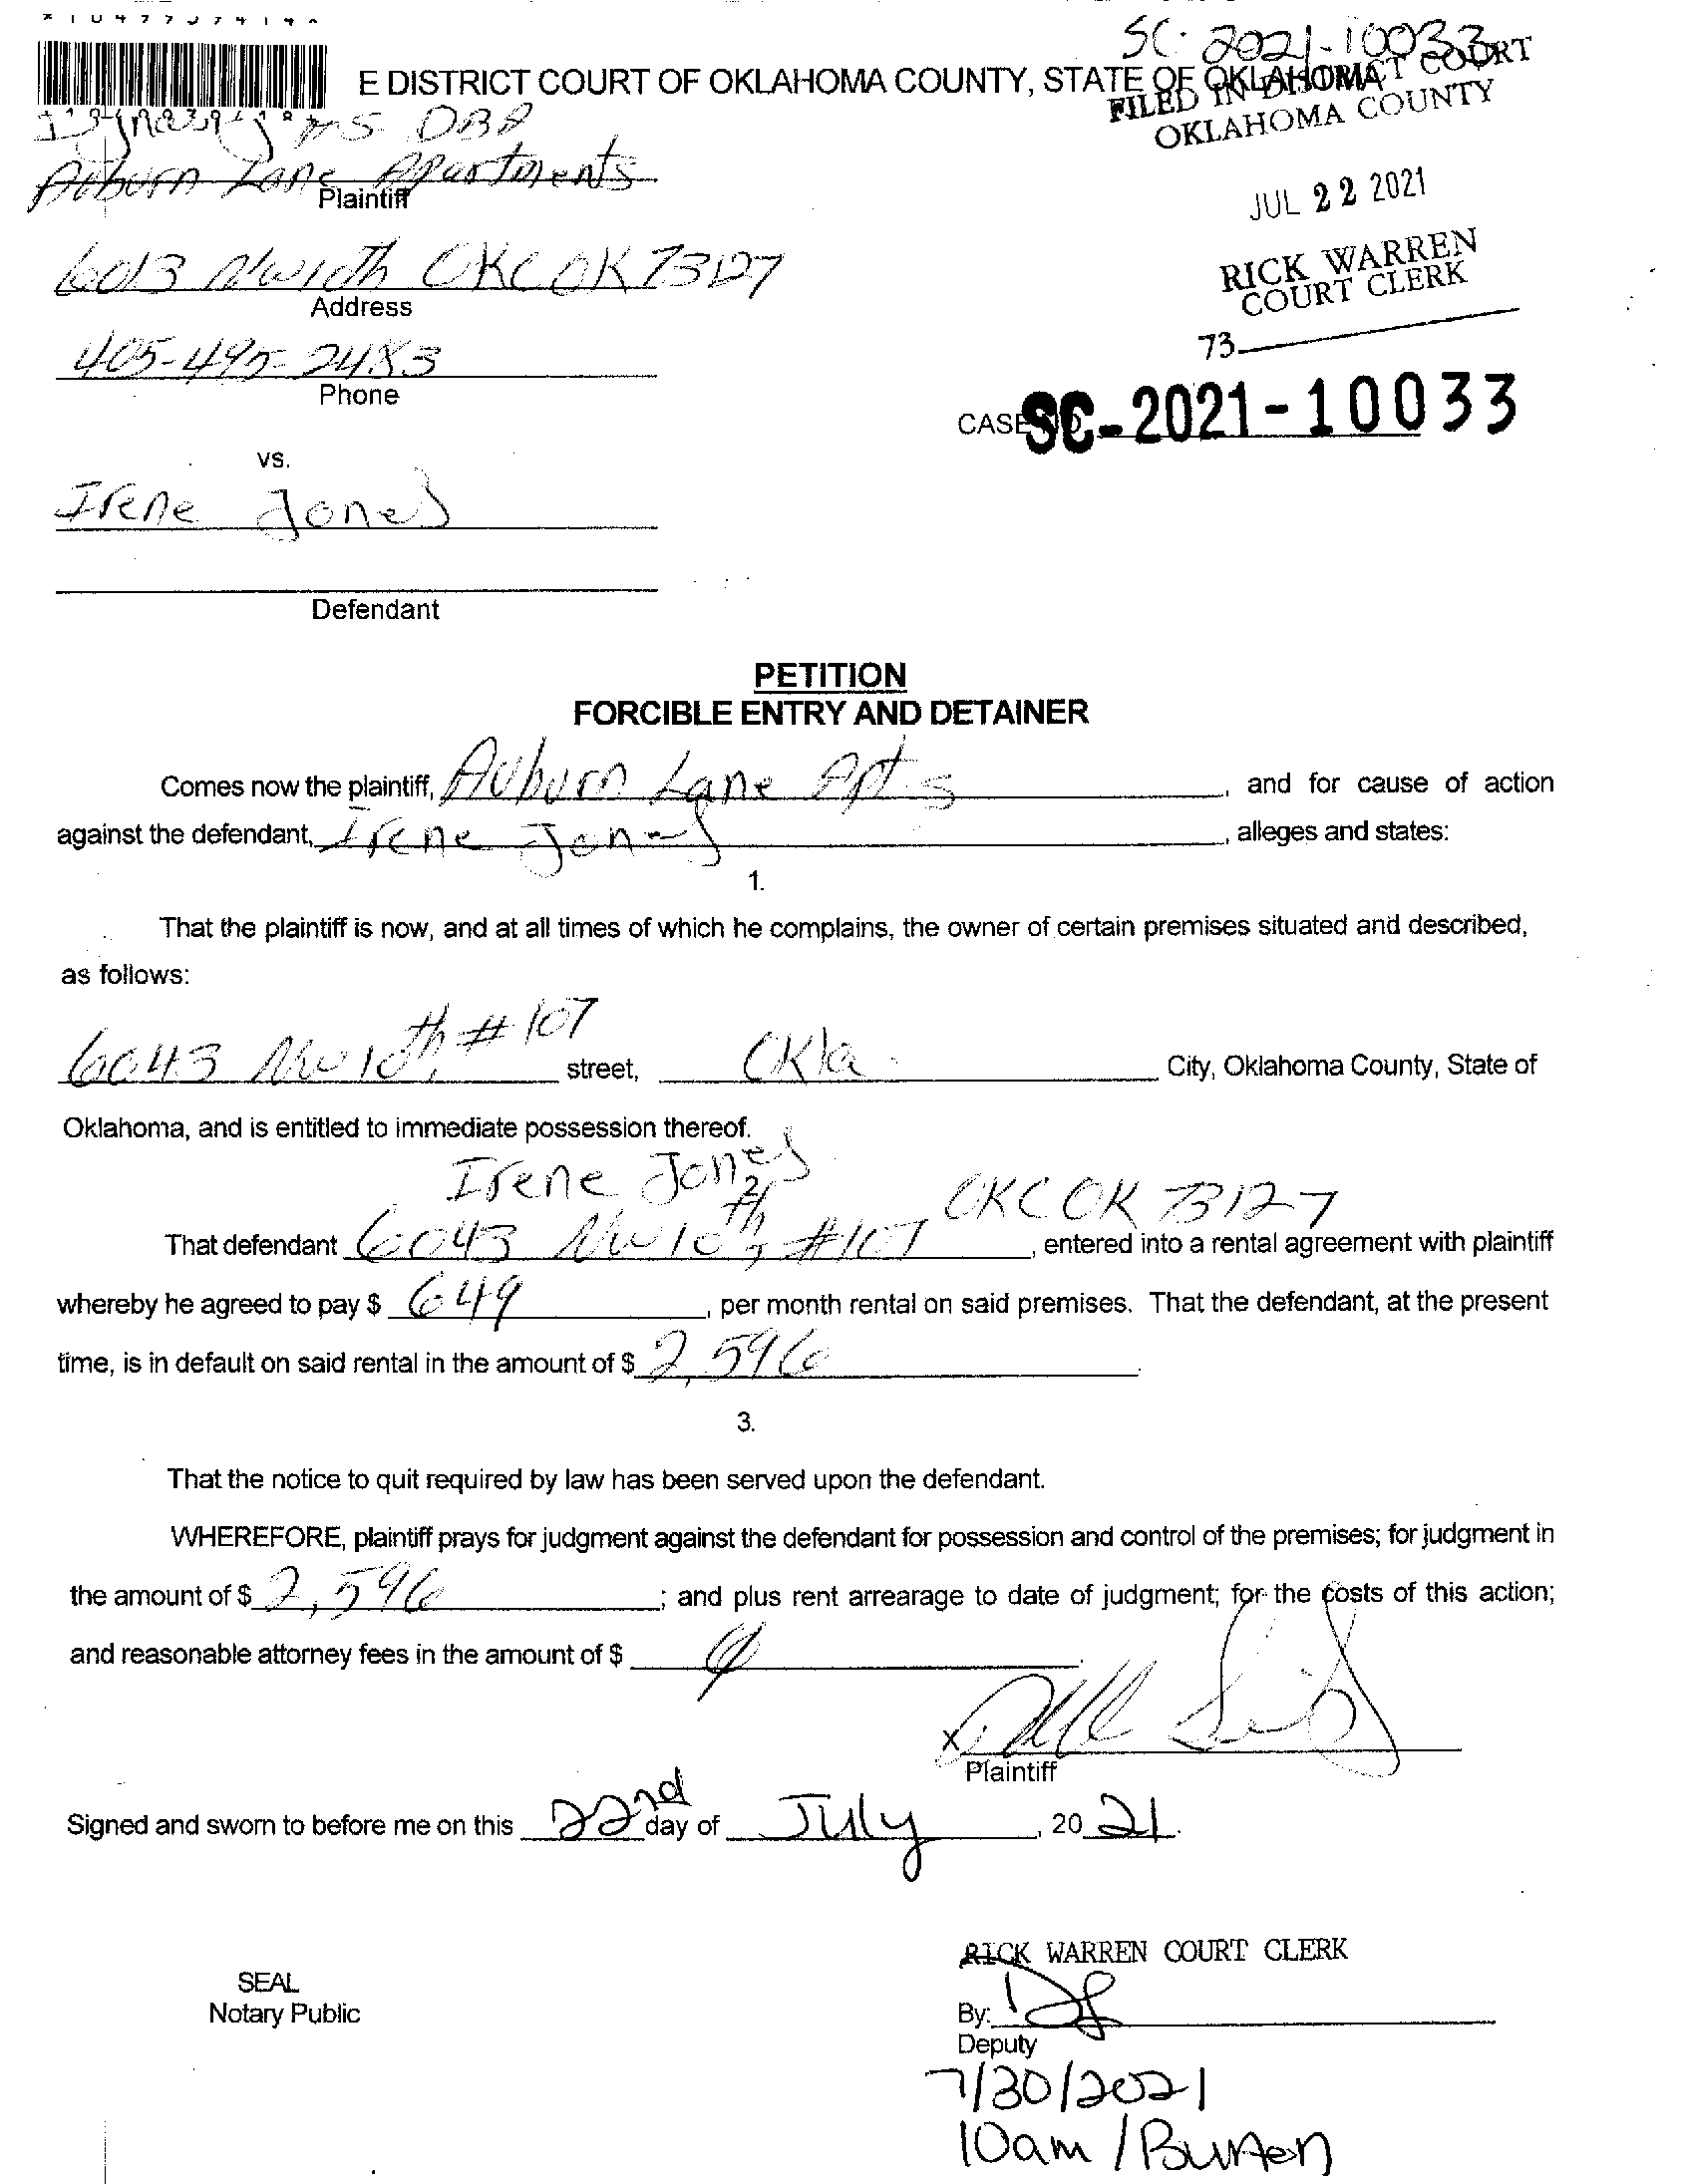 SC-2021-10033
E DISTRICT COURT OF OKLAHOMA COUNTY, STATE OF OKLAHOMA
FILED IN DISTRICT COURT
OKLAHOMA COUNTY
DBA
Auburn Lane Apartments
Plaintiff
JUL 22 2021
6013 NW 10th OKC OK 73127
Address
RICK WARREN
COURT CLERK
73
405-495-2483
Phone
CASE NO. SC-2021-10033
vs.
Irene Jones
Defendant
PETITION
FORCIBLE ENTRY AND DETAINER
Comes now the plaintiff, Auburn Lane Apts, and for cause of action
against the defendant, Irene Jones, alleges and states:
1.
That the plaintiff is now, and at all times of which he complains, the owner of certain premises situated and described,
as follows:
6043 NW 10th #107 street, Okla City, Oklahoma County, State of
Oklahoma, and is entitled to immediate possession thereof.
Irene Jones
2.
OKC OK 73127
That defendant 6043 NW 10th, #107, entered into a rental agreement with plaintiff
whereby he agreed to pay $ 649, per month rental on said premises. That the defendant, at the present
time, is in default on said rental in the amount of $ 2,596.
3.
That the notice to quit required by law has been served upon the defendant.
WHEREFORE, plaintiff prays for judgment against the defendant for possession and control of the premises; for judgment in
the amount of $ 2,596; and plus rent arrearage to date of judgment; for the costs of this action;
and reasonable attorney fees in the amount of $
X
Plaintiff
Signed and sworn to before me on this 22nd day of July, 2021.
RICK WARREN COURT CLERK
SEAL
Notary Public
By:
Deputy
7/30/2021
10am / Burton